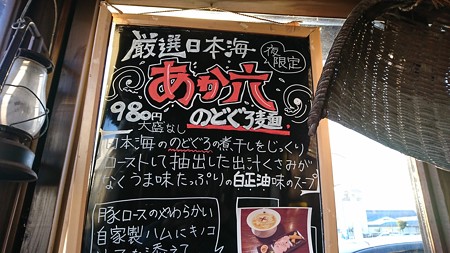 厳選日本海
夜限定
あか六
980円
のどぐろ麺
大盛なし
日本海ののどぐろの煮干しをじっくり
ローストして抽出した出汁くさみが
なくうま味たっぷりの白正油味のスープ
豚ロースのやわらかい
自家製ハムにキノコ